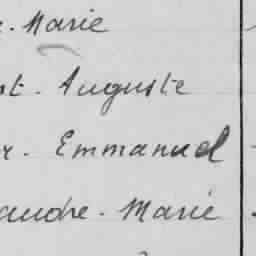 . Marie
t. Auguste
r. Emmanuel
andre. Marie